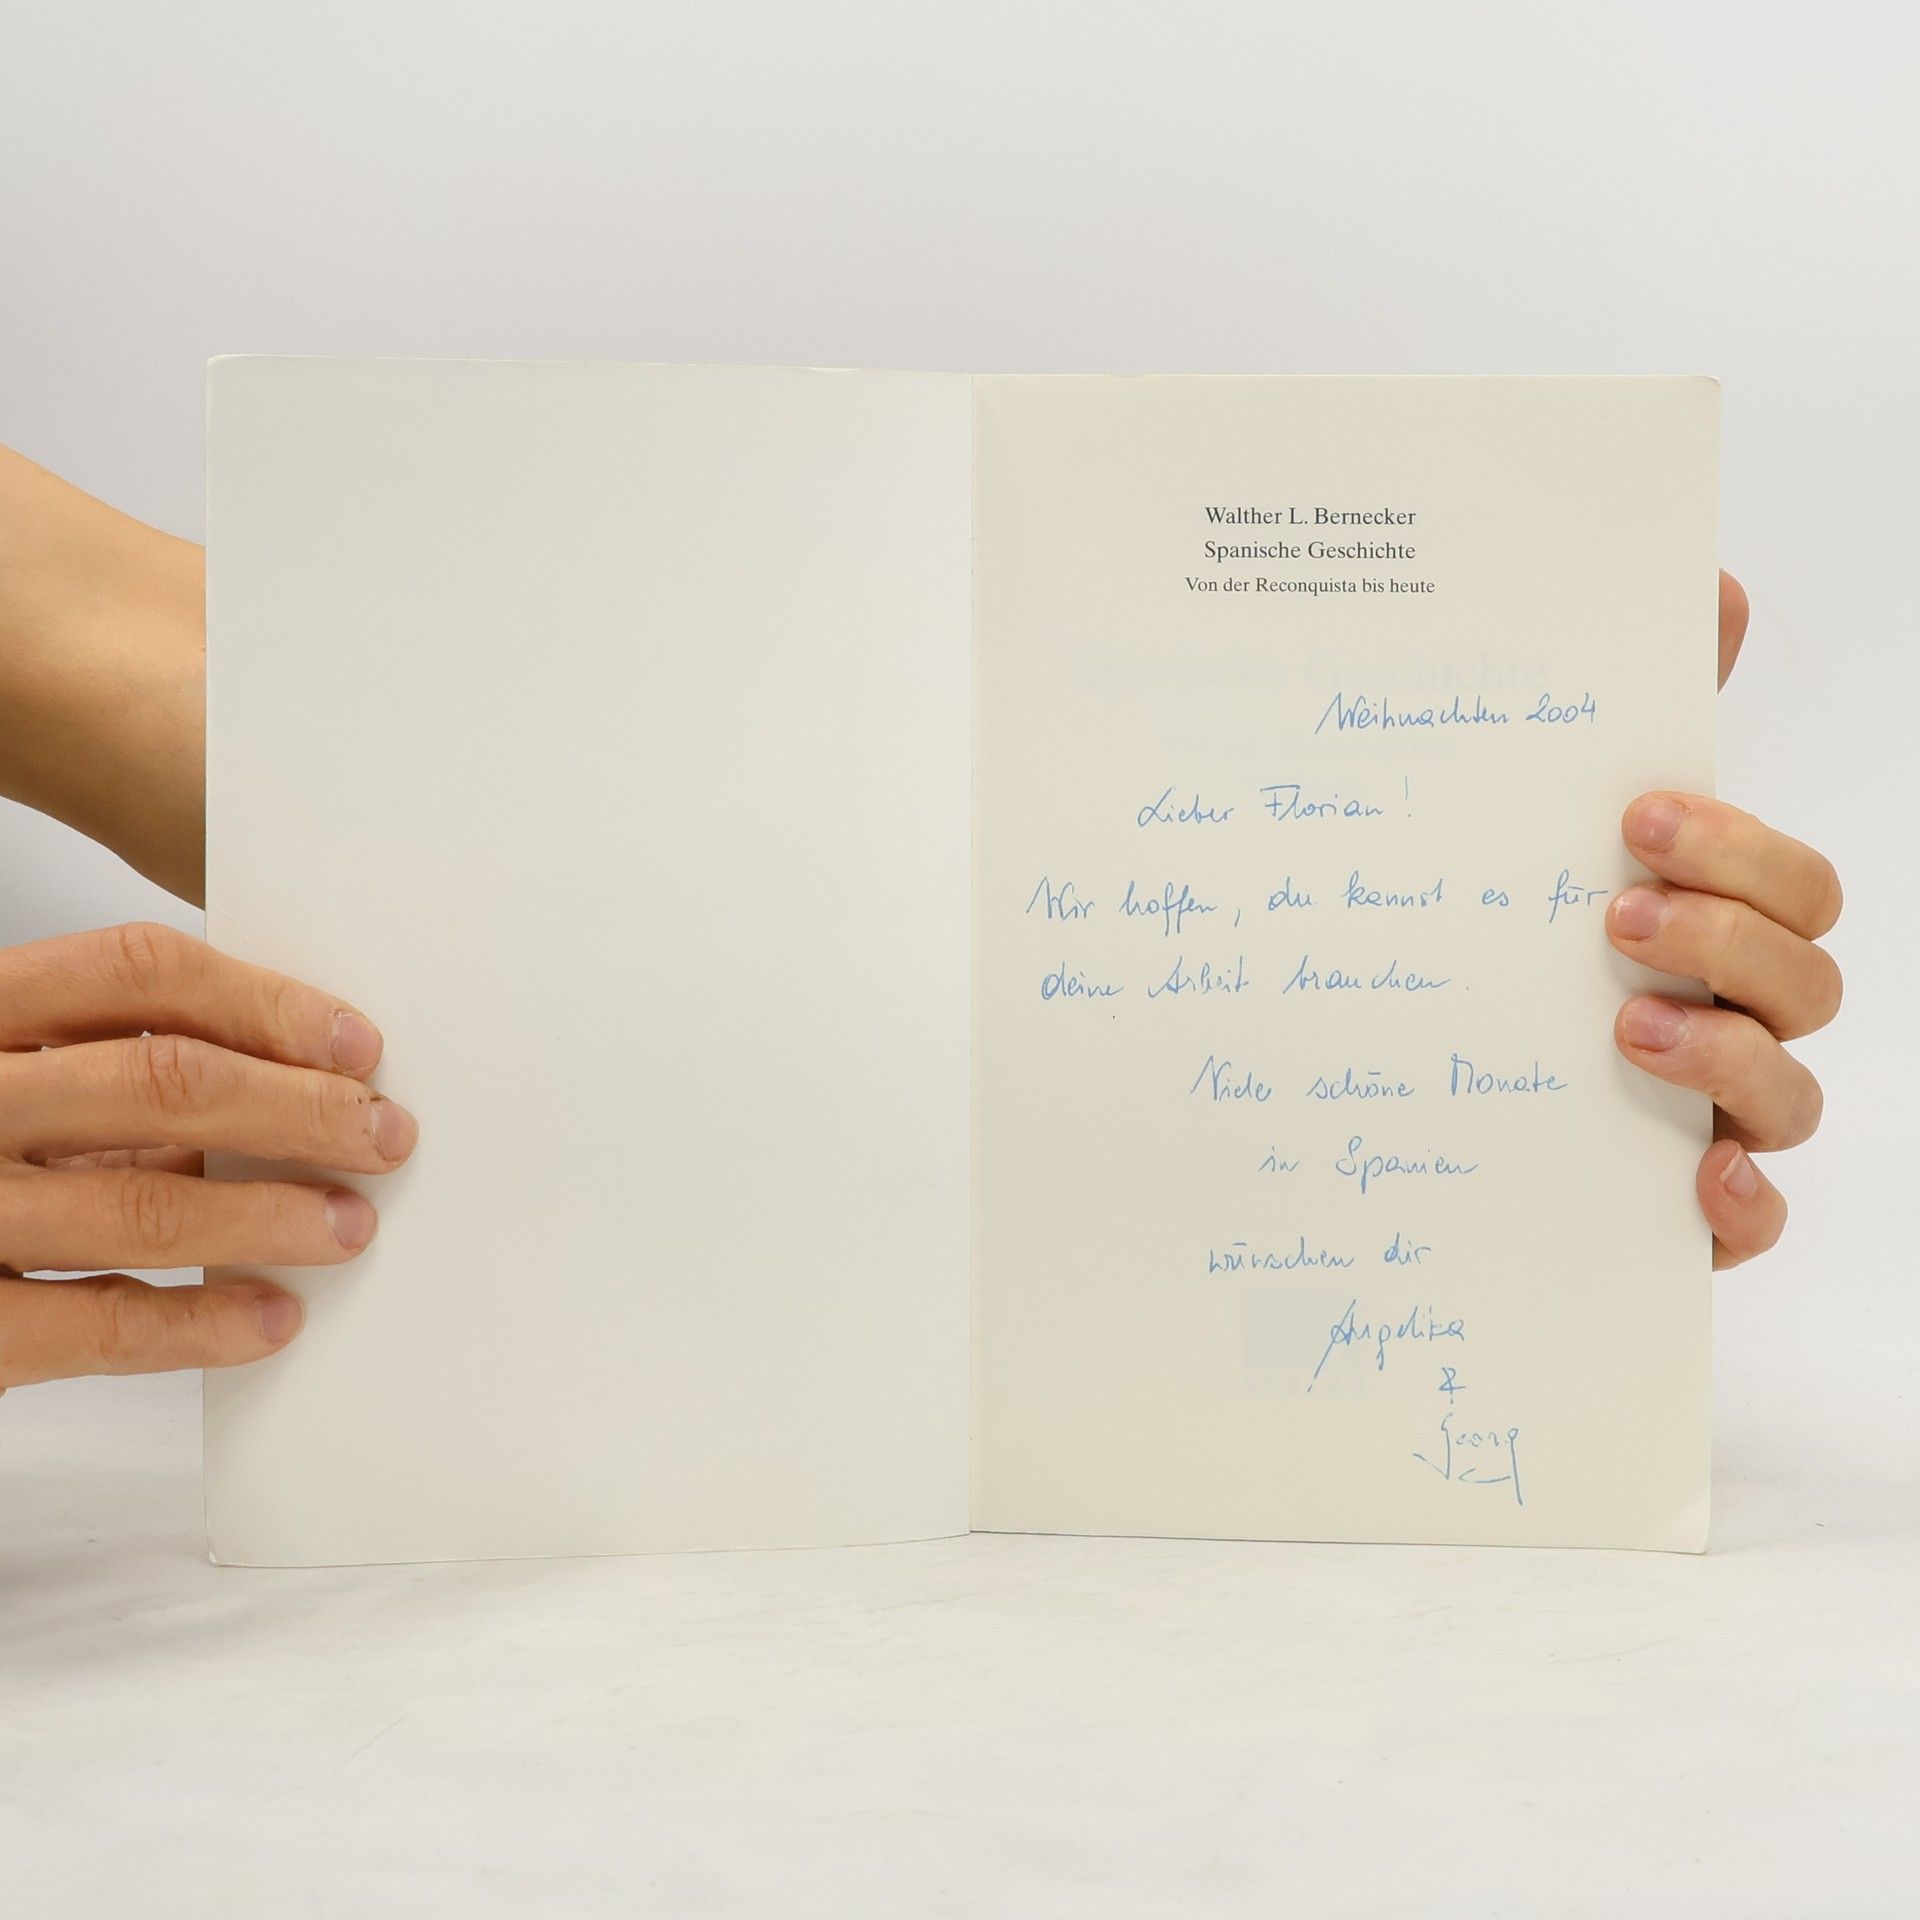 Walther L. Bernecker
Spanische Geschichte
Von der Reconquista bis heute
Weihnachten 2004
Lieber Florian!
Wir hoffen, du kannst es für
deine Arbeit brauchen.
Viele schöne Monate
in Spanien
wünschen dir
Angelika
&
Georg